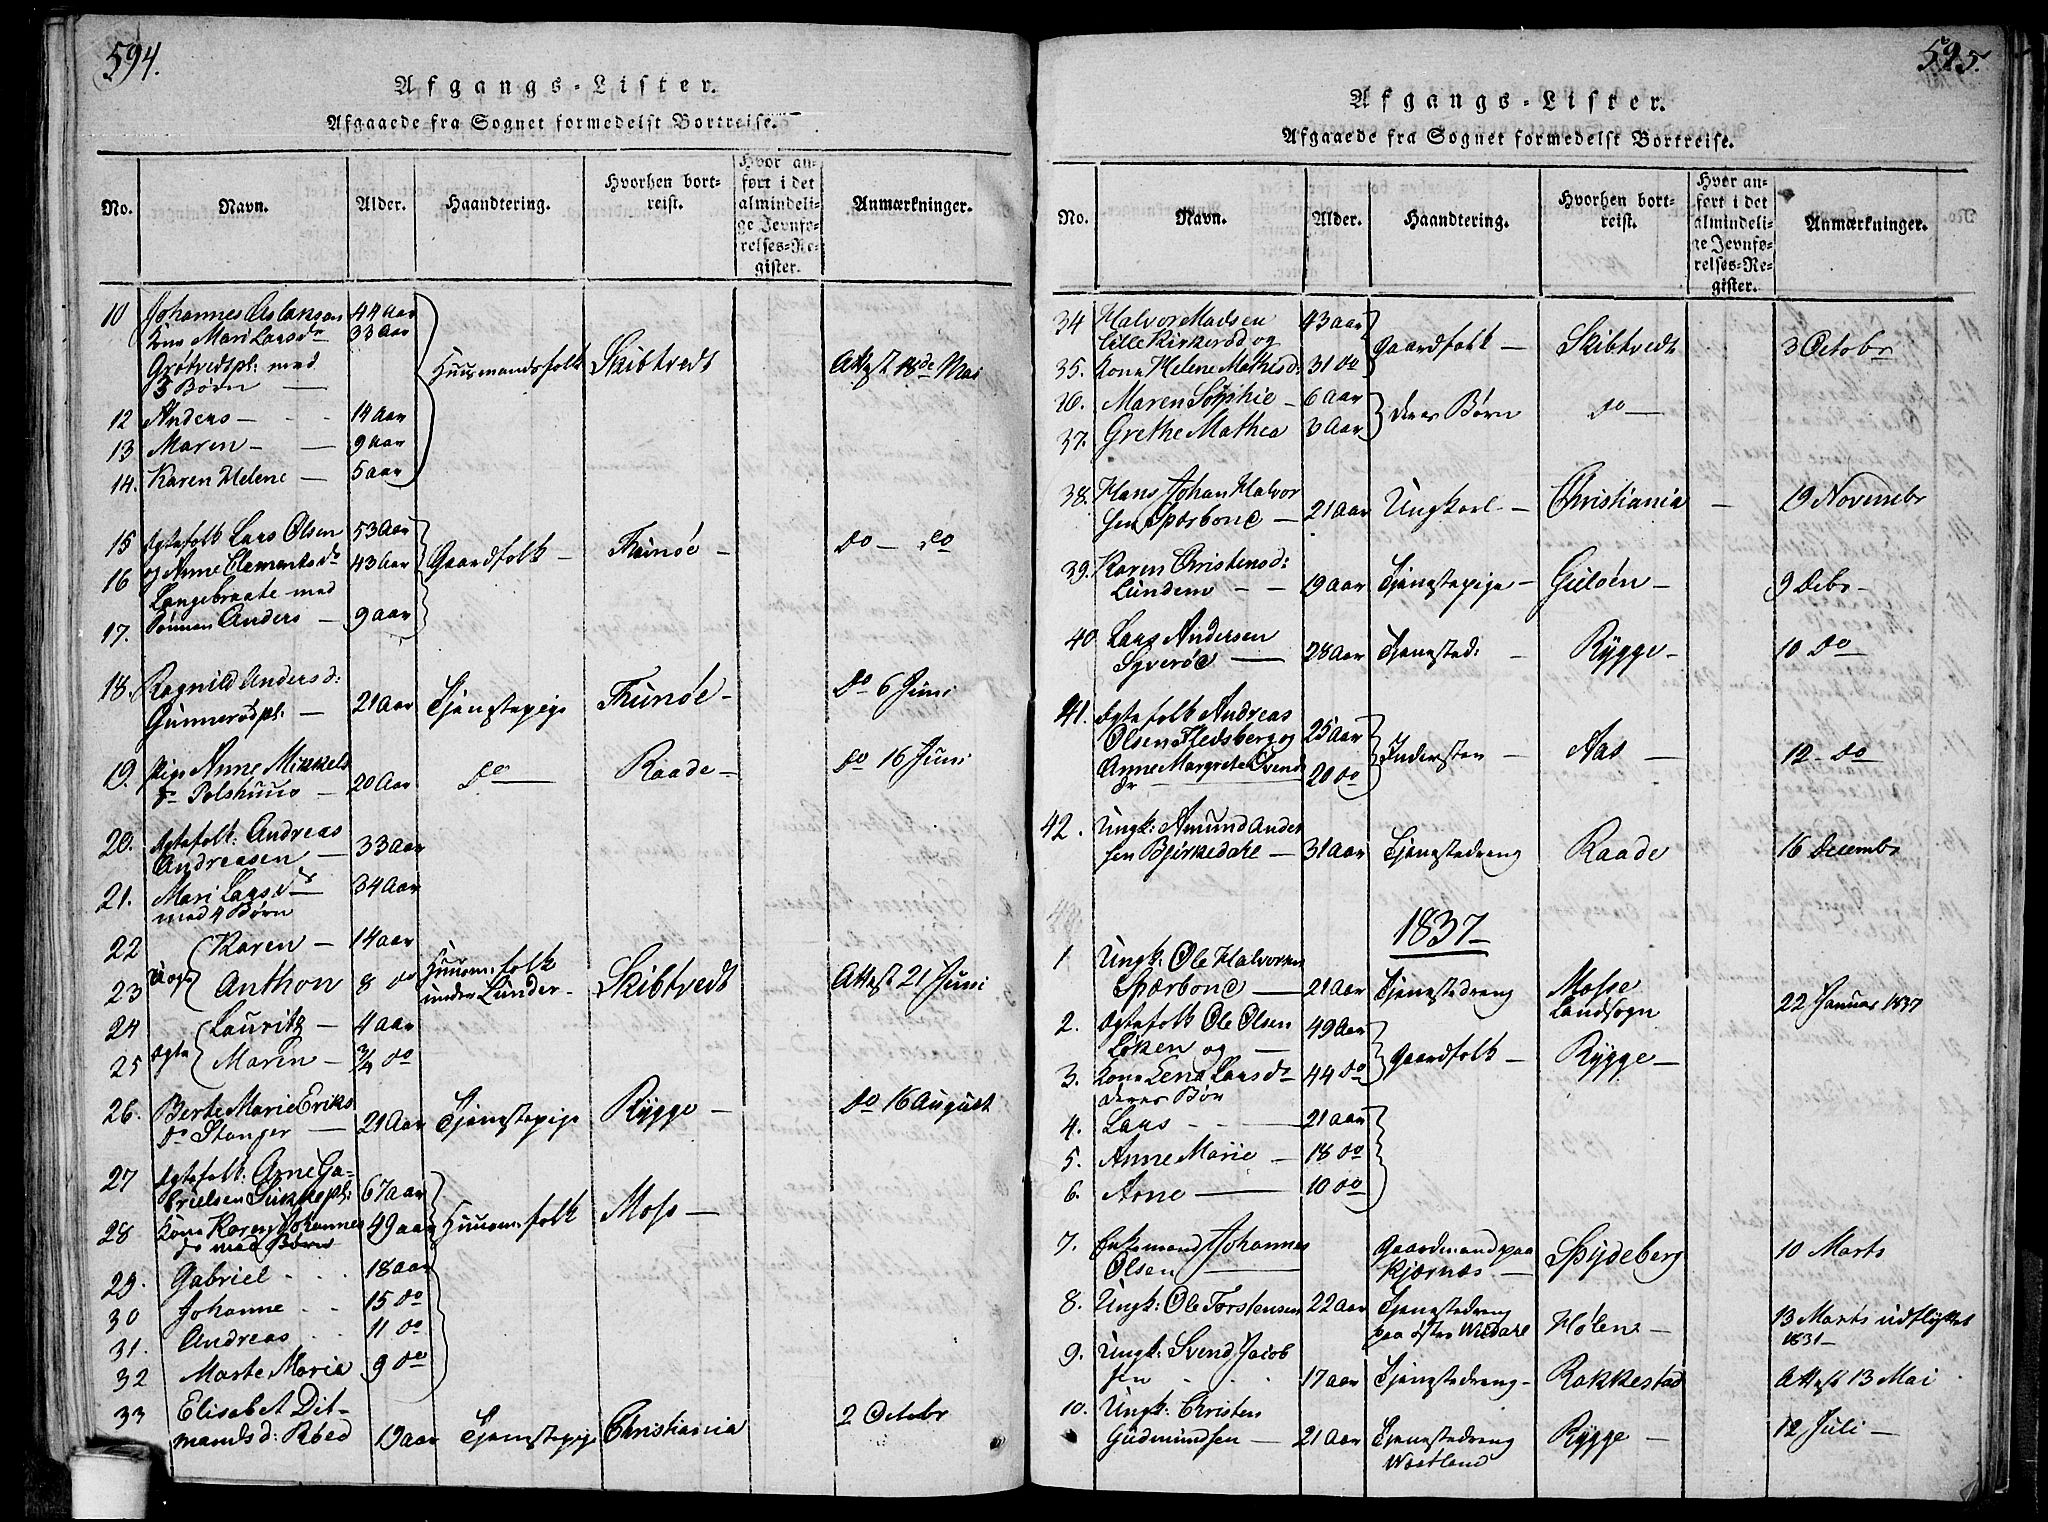 594.
Afgangs-Lister.
Afgaaede fra Sognet formedelst Bortreise.
No.
Navn.
Alder.
Haandtering.
Hvorhen bort-
reist.
Hvor an-
ført i det
almindeli-
ge Jevnfø-
relses-Re-
gister.
Anmærkninger.
10 Johannes Aslaksen 44 aar
Kone Mari Larsdr 33 aar
Grøtvedtpl: med Huusmandsfolk Skibtvedt Attest 18de Mai
3 Børn —
12 Anders — 14 aar
13 Maren — 9 aar
14. Karen Helene — 5 aar
15 Ægtefolk Lars Olsen 53 aar
16 og Anne Clementsdr 43 aar Gaardfolk — Thunøe — do — do
Langebraate med
17. Sønnen Anders — 9 aar
18. Ragnild Andersd:
Gunnerødpl: — 21 aar Tjenstepige Thunøe — do 6 Juni
19. Pige Anne Mikkels
dr Polshuus — 20 aar do — Raade — do 16 Juni
20. Ægtefolk: Andreas
Andreasen — 33 aar
21. Mari Larsdr 34 aar
med 4 Børn
22 Karen — 14 aar
23 uægte Anthon 8 do Huusm: folk
under Lunder — Skibtvedt Attest 21 Juni
24 Lauritz — 4 aar
25 ægte Maren — 3/4 do
26. Berte Marie Eriks
dr Stanger — 21 aar Tjenstepige Rygge — do 16 August
27 Ægtefolk: Arne Ga-
brielsen Sukkepl: 67 aar
28 Kone Karen Johannes 49 aar Huusm: folk Moss —
dr med Børn
29. Gabriel . . . 18 aar
30 Johanne . . 15 do
31. Andreas . . 11 do
32 Marte Maria 9 do
33 Elisabet Dit-
mansd: Røed 19 aar Tjenstepige Christiania 2 Octobr
595.
Afgangs-Lister.
Afgaaede fra Sognet formedelst Bortreise.
No.
Navn.
Alder.
Haandtering.
Hvorhen bort-
reist.
Hvor an-
ført i det
almindeli-
ge Jevnfø-
relses-Re-
gister.
Anmærkninger.
34 Halvor Madsen 43 aar
Lille Kirkerød og Gaardfolk — Skibtvedt 3 Octobr
35. Kone Helene Mathisd: 31 do
36. Maren Sophie — 6 aar
deres Børn do —
37. Grethe Mathea 3 aar
38. Hans Johan Halvor
sen Spærbond — 21 aar Ungkarl — Christiania — 19 Novembr
39. Karen Christensd:
Lundem — — 19 aar Tjenstepige — Guløen — 9 Debr —
40 Lars Andersen
Syverød — 28 aar Tjensted: — Rygge — 10 do
41. Ægtefolk Andreas
Olsen Hedsberg og 25 aar Indersten — Aas — 12 — do
Anne Margrete Svends
dr — 20 do
42. Ungk: Amund Ander
sen Bjirkedale — 31 aar Tjenstedreng Raade 16 Decembr
1837
1 Ungk: Ole Halvorsen
Spærbond — 21 aar Tjenstedreng Mosse
Landsogn 22 Januar 1837
2. Ægtefolk Ole Olsen 49 aar
Løken og — Gaardfolk — Rygge —
3. Kone Lene Larsdr 44 do
deres Bør
4. Lars — — 21 aar
5. Anne Marie — 18 do
6. Arne — 10 do
7. Enkemand Johannes Gaardmand paa Spydeberg 10 Marts
Olsen — Kjærnæs —
8. Ungk: Ole Torstensen 22 aar Tjenstedreng
paa østre Wardale Hølen — 13 Marts udflyttet
1831 —
9. Ungk: Svend Jacob
sen . . . 17 aar Tjenstedreng — Rakkestad Attest 13 Mai
10. Ungk: Christen
Gudmundsen — 21 aar Tjenstedreng Rygge — 12 Juli —
Waatland